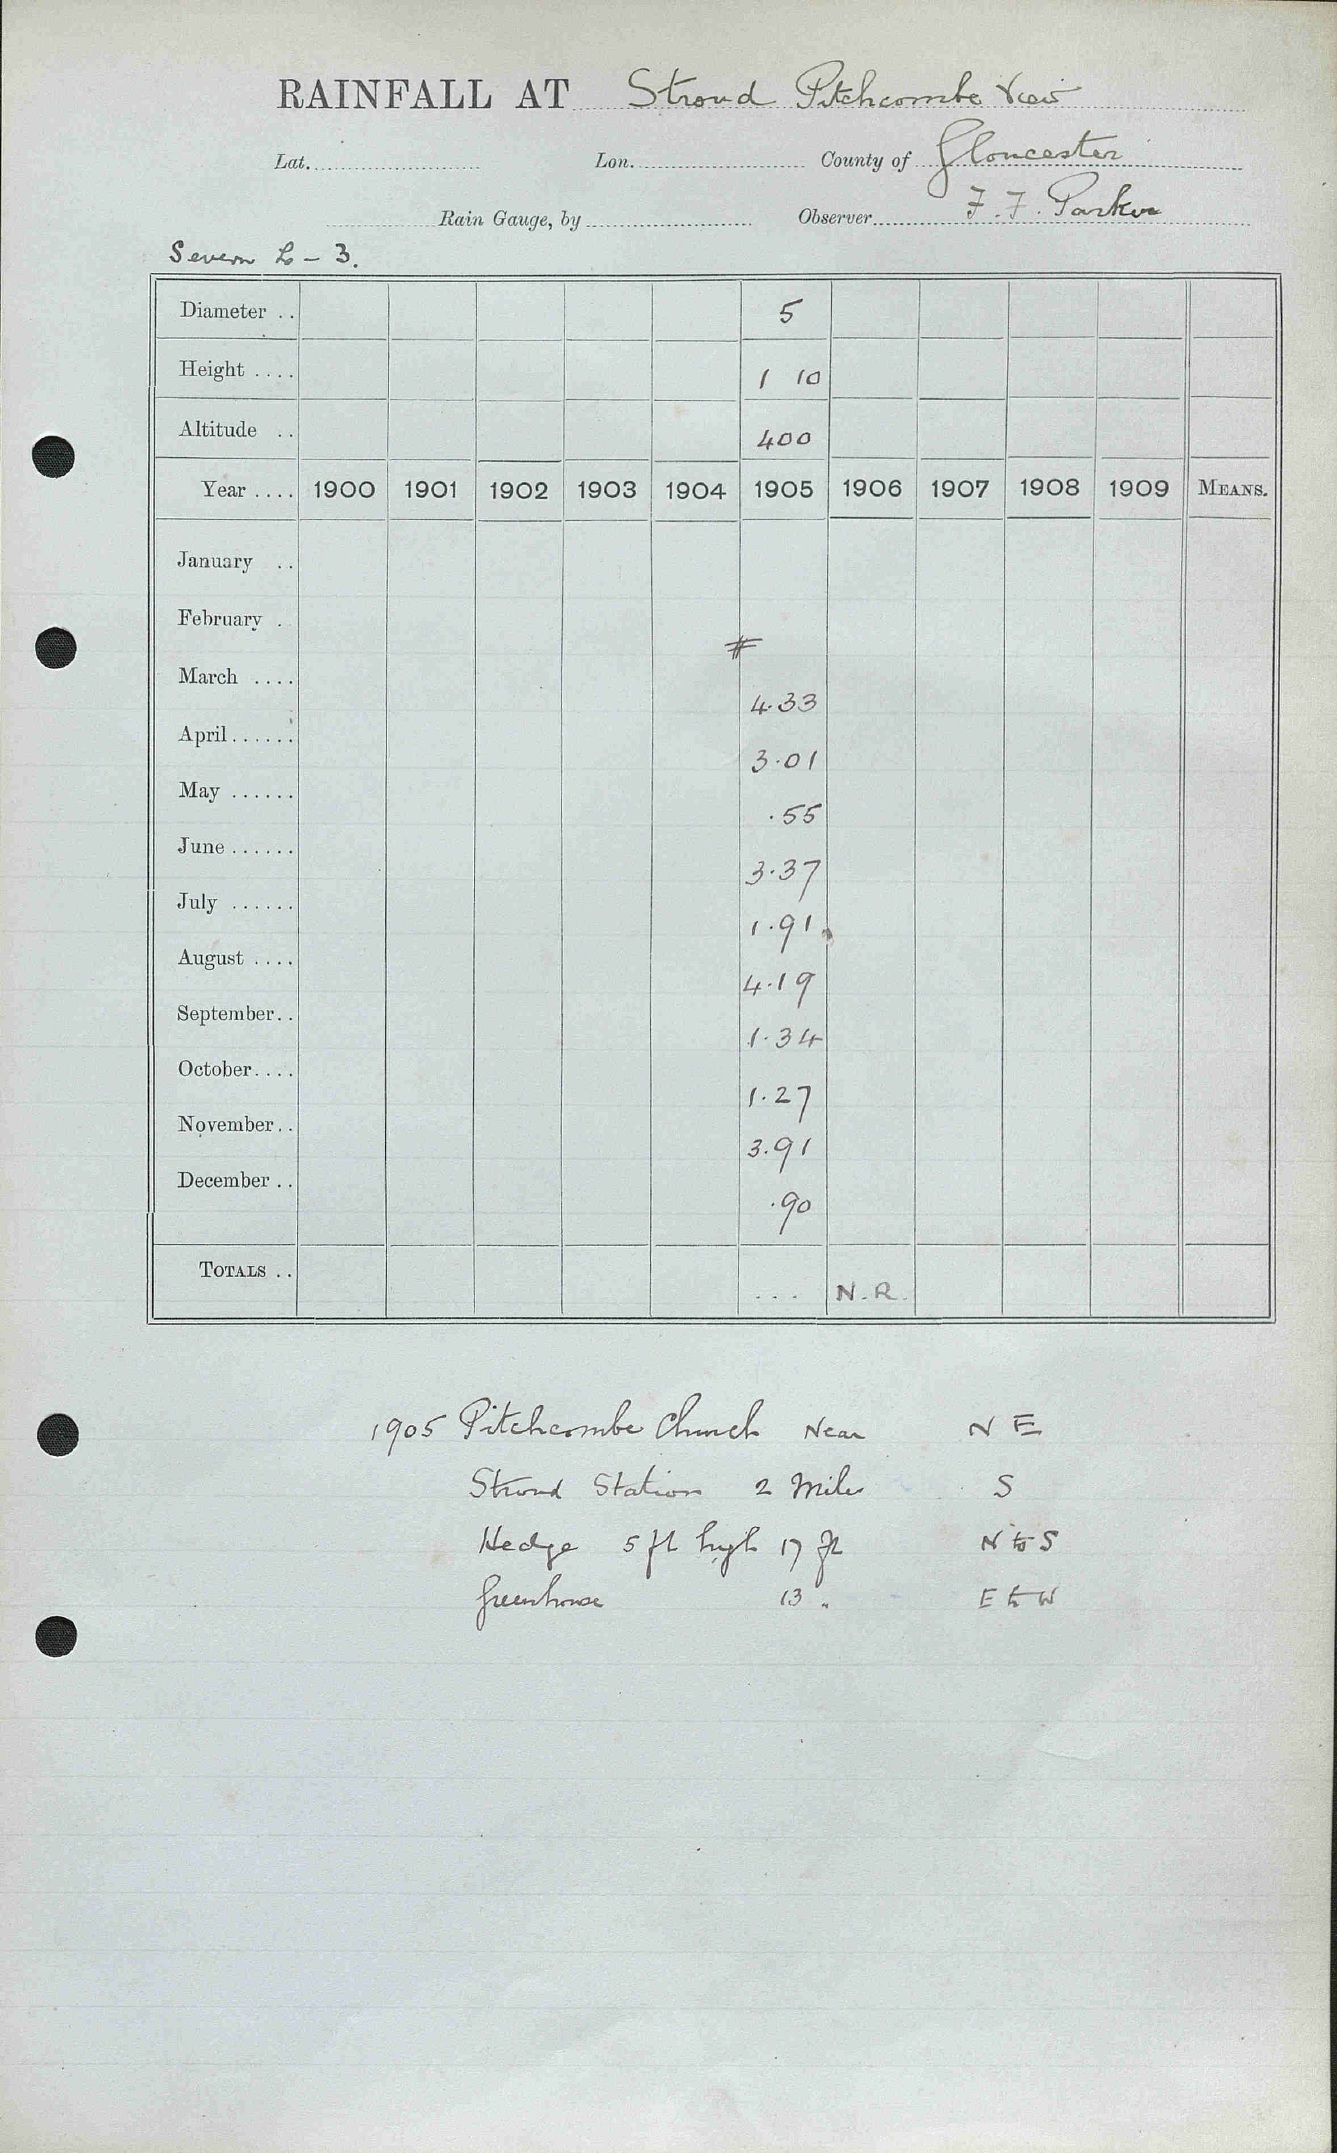 RAINFALL AT Stroud Pitchcombe View
Lat. Lon. County of Gloucester
Rain Gauge, by Observer F. F. Parker
Severn L - 3.
Diameter .. 5
Height .... 1 10
Altitude .. 400
Year .... 1900 1901 1902 1903 1904 1905 1906 1907 1908 1909 MEANS.
January ..
February .
#
March .... 4.33
April...... 3.01
May ...... .55
June ...... 3.37
July ...... 1.91
August .... 4.19
September.. 1.34
October.... 1.27
November.. 3.91
December .. .90
TOTALS .. ... N.R.
1905 Pitchcombe Church Near N E
Stroud Station 2 Miles S
Hedge 5 ft high 17 ft N to S
Greenhouse 13 " E to W